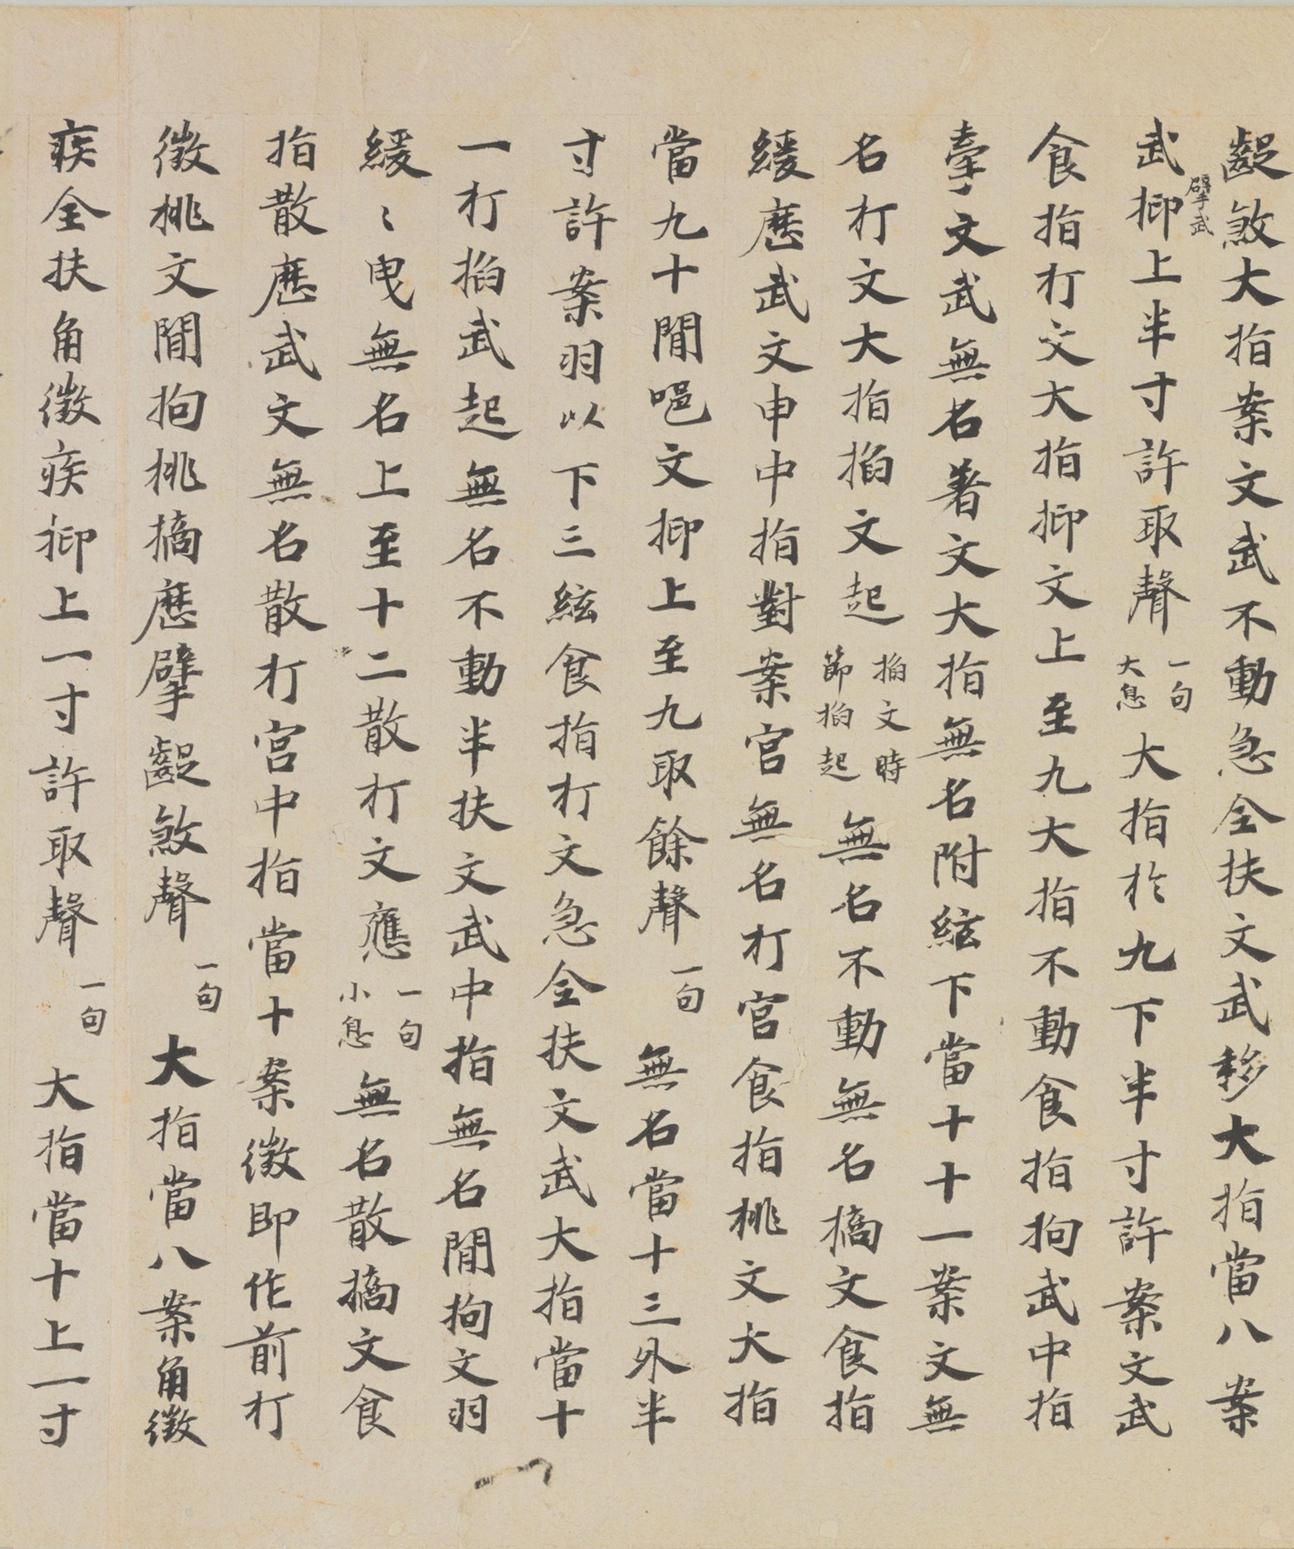 齪煞大指案文武不動急全扶文武移大指當八案
武擘武抑上半寸許取聲一句大息大指於九下半寸許案文武
食指打文大指抑文上至九大指不動食指拘武中指
文武無名著文大指無名附絃下當十十一案文無
名打文大指掐文起掐文時節掐起無名不動無名摘文食指
緩歷武文申中指對案宮無名打宮食指挑文大指
當九十間吧文抑上至九取餘聲一句無名當十三外半
寸許案羽以下三絃食指打文急全扶文武大指當十
一打掐武起無名不動半扶文武中指無名間拘文羽
緩〻曳無名上至十二散打文應一句小息無名散摘文食
指散歷武文無名散打宮中指當十案徵即作前打
徵挑文間拘挑摘歷擘齪煞聲一句大指當八案角徵
疾全扶角徵疾抑上一寸許取聲一句大指當十上一寸